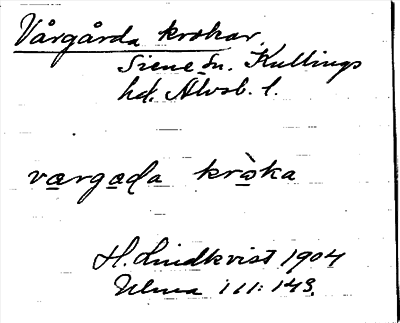 Vårgårda krokar.
Siene sn. Kullings
hd. Älvsb. l.
vargada kràka
H. Lindkvist 1904
111: 148.